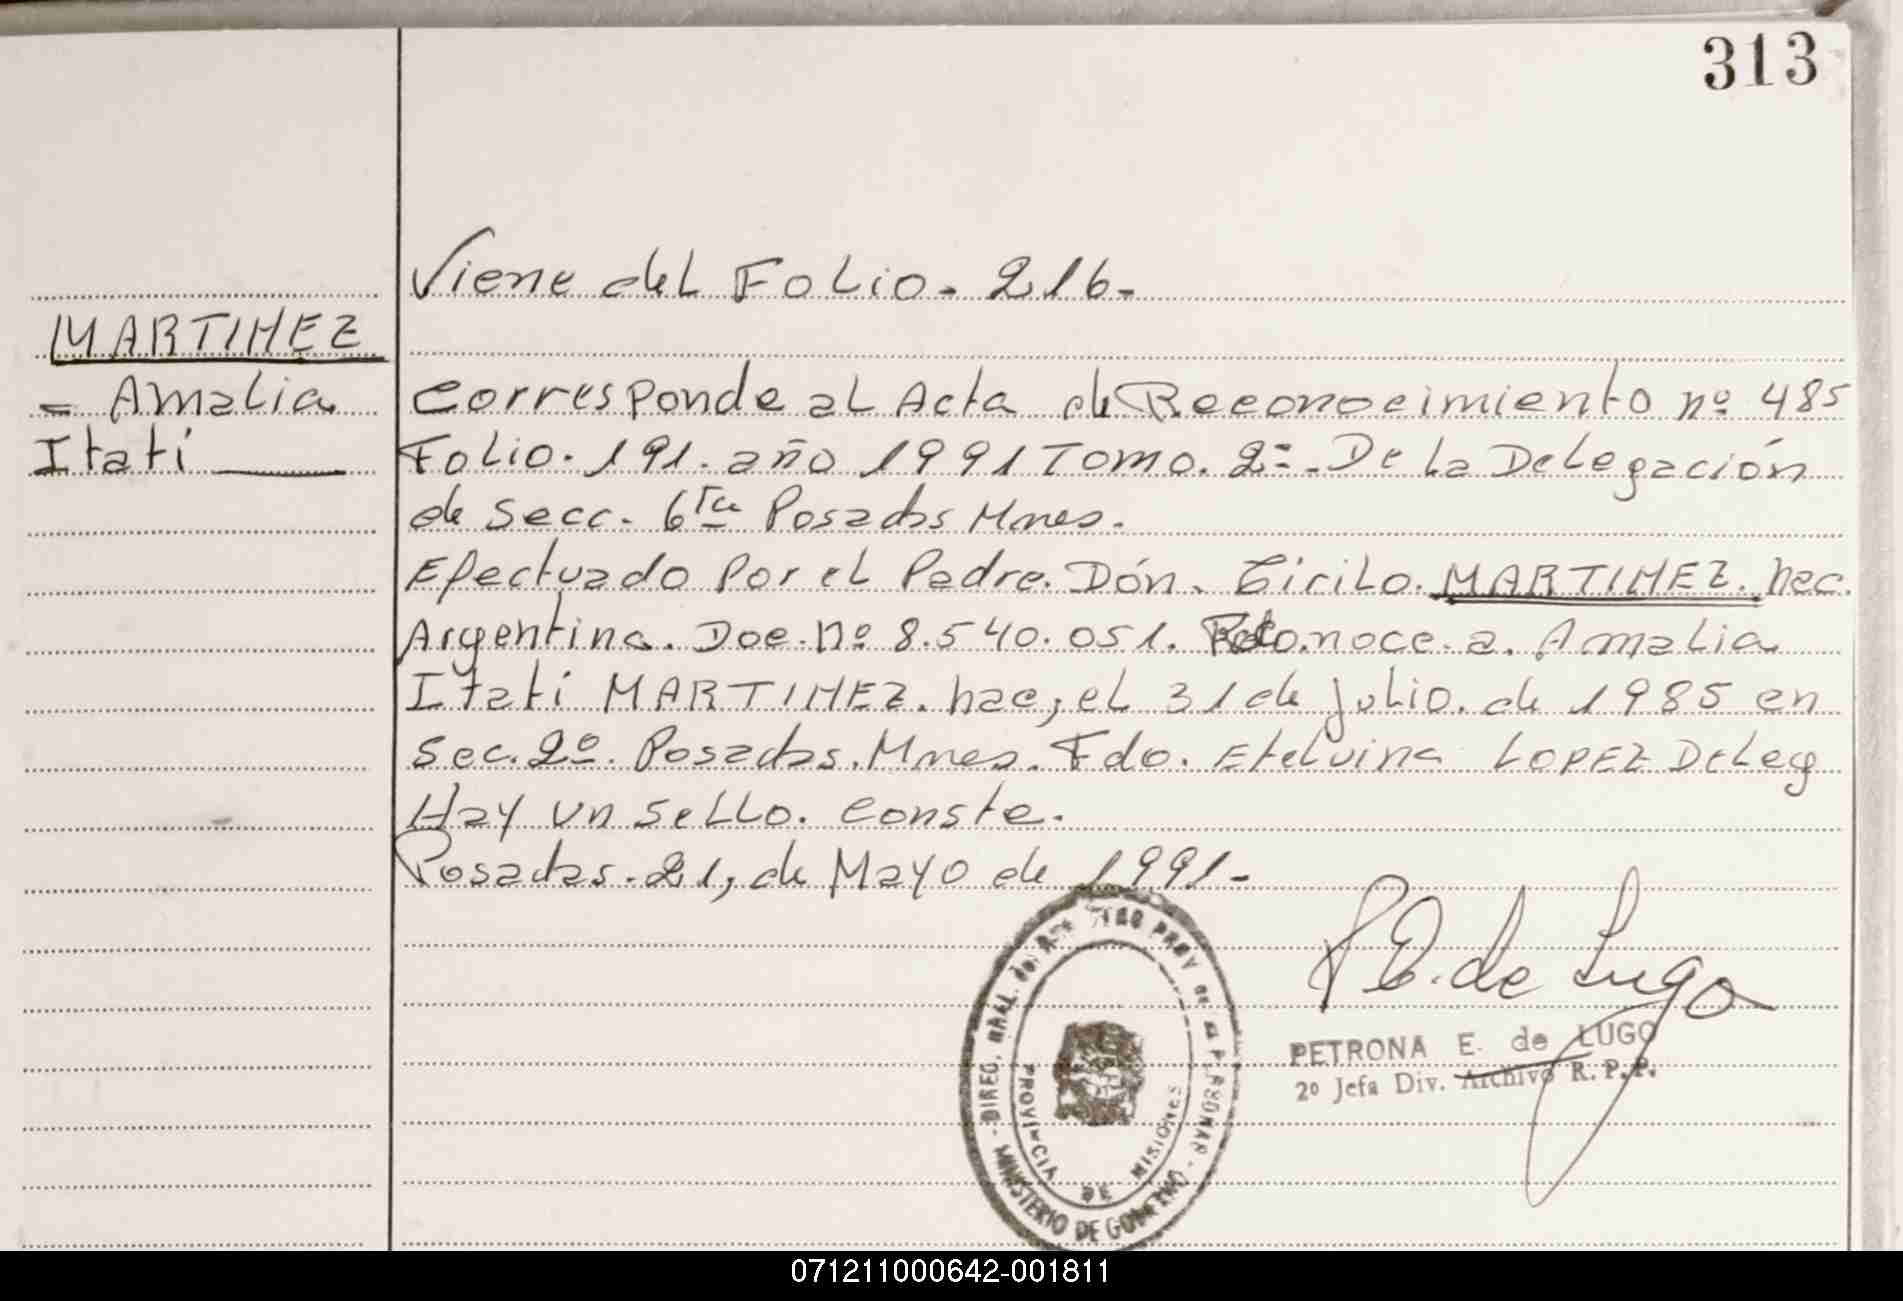 313
Viene del Folio. 216.
MARTINEZ
= Amalia
Itati
Corresponde al Acta de Reconocimiento nº 485
Folio. 191. año 1991 Tomo. 2º. De la Delegación
de Secc. 6ta Posadas Mnes.
Efectuado Por el Padre. Dón. Cirilo. MARTINEZ. nac.
Argentina. Doc. nº 8.540.051. Reconoce. a. Amalia
Itati MARTINEZ. nac, el 31 de julio. de 1985 en
Sec. 2º. Posadas. Mnes. Fdo. Etelvina LOPEZ Deleg
Hay un sello. Conste.
Posadas. 21, de Mayo de 1991.-
P E. de Lugo
PETRONA E. de LUGO
2º Jefa Div. Archivo R.P.P.
DIREC. NRAL. del PROV DE
PROVINCIA DE MISIONES
MINISTERIO DE GOBIERNO
071211000642-001811